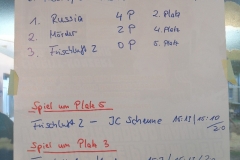 1. Russia 4 P 2. Platz
2. Mörder 2 P 4. Platz
3. Frischluft 2 0 P 5. Platz
Spiel um Platz 5
Frischluft 2 – JC Scheune 15:13 / 15:10
2:0
Spiel um Platz 3